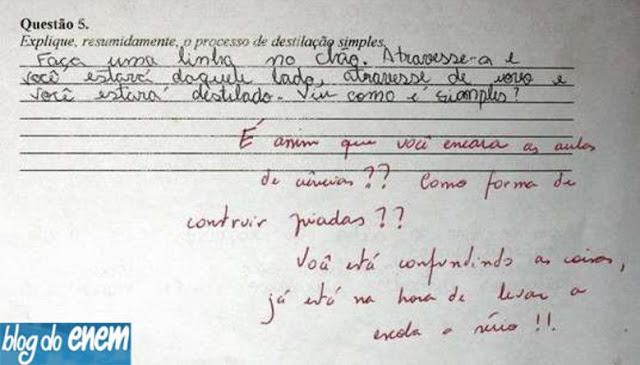 Questão 5.
Explique, resumidamente, o processo de destilação simples.
Faça uma linha no chão. Atravesse-a e
você estará daquele lado, atravesse de novo e
você estará destilado. Viu como é simples?
É assim que você encara as aulas
de ciências?? Como forma de
construir piadas??
Você está confundindo as coisas,
já está na hora de levar a
escola a sério!!.
blog do enem